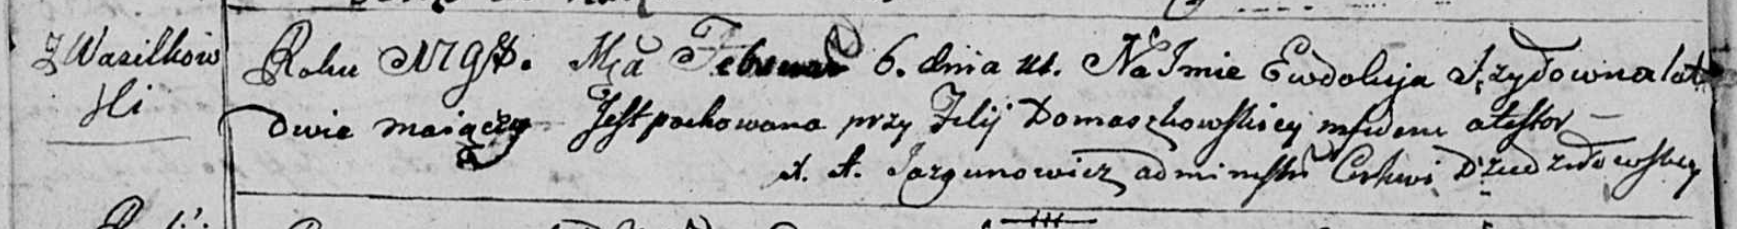 Z Wasilkow
ki
Roku 1798. Mca Februar 6. dnia ut. Na Imie Ewdokija Szydowna lat
dwie maiącza Jest pochowana przy Filij Domaszkowskiey mpdem atestor
X. A. Jazgunowicz administr Cerkwi Dziedziłowskiey